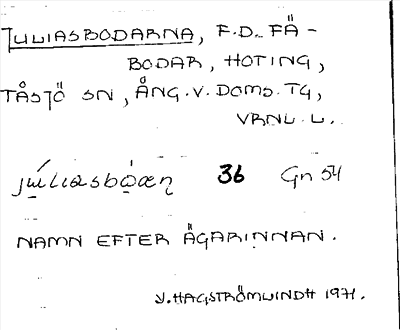 JULIASBODARNA, F.D. FÄ-
BODAR, HOTING,
TÅSJÖ SN, ÅNG. V. DOMS. TG,
VRNL. L.
júliasbọæṇ 36 Gn 54
NAMN EFTER ÄGARINNAN.
V. HAGSTRÖMLINDH 1971.